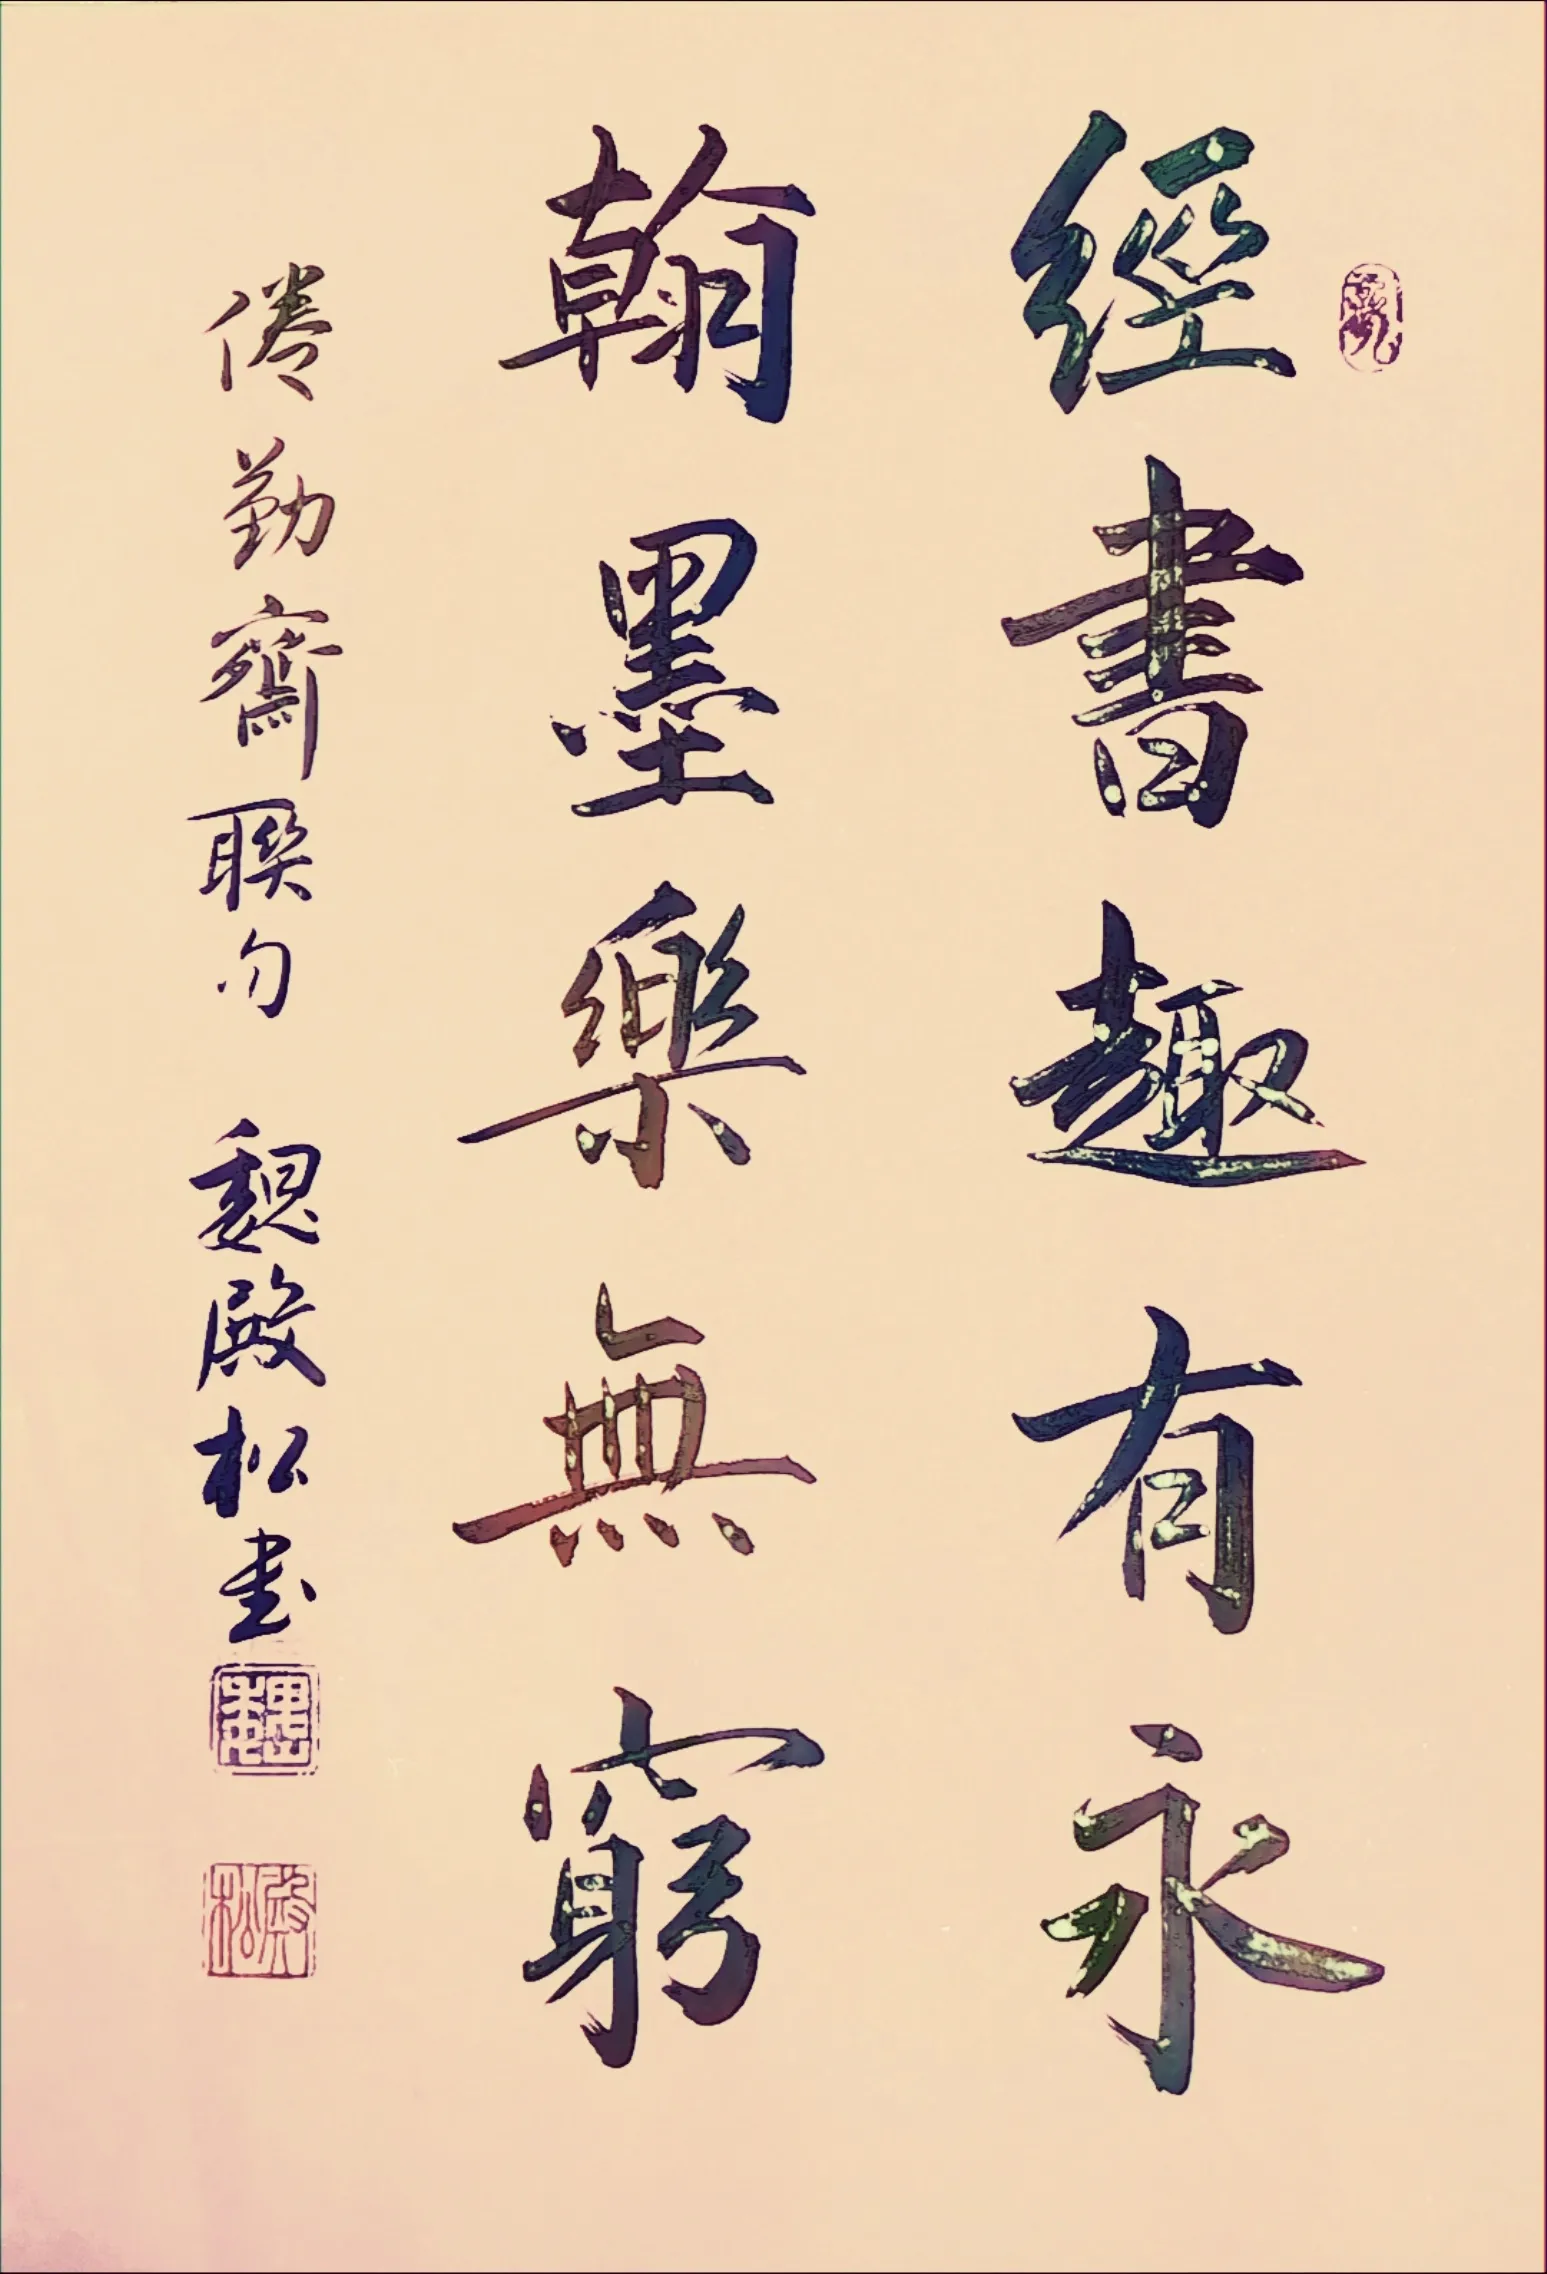 經書趣有永
翰墨樂無窮
倦勤齋聯句 魏殿松書
魏
殿松